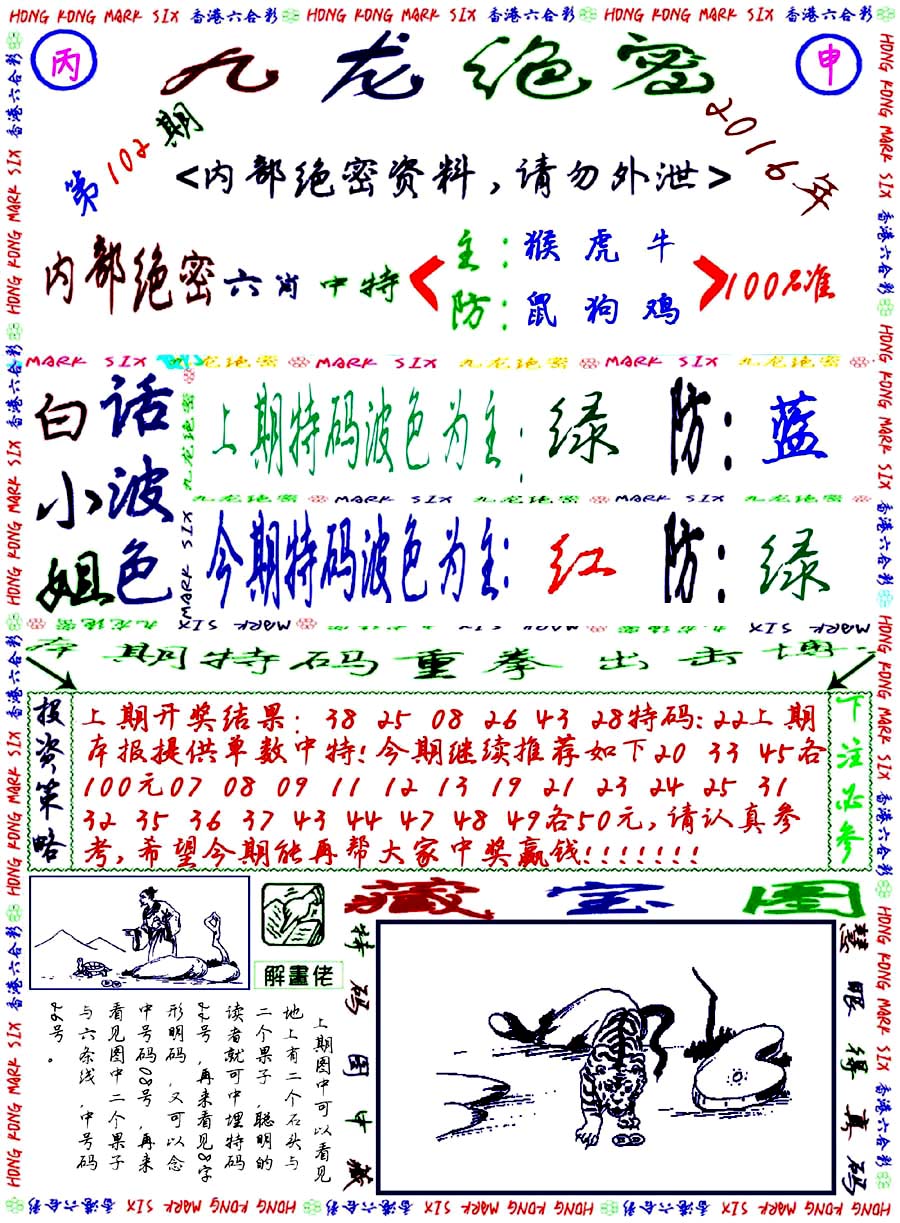 HONG KONG MARK SIX 香港六合彩 HONG KONG MARK SIX 香港六合彩 HONG KONG MARK SIX 香港六合彩
丙
九龙绝密
申
第102期
2016年
<内部绝密资料，请勿外泄>
内部绝密六肖中特
主：猴虎牛
防：鼠狗鸡
100%准
MARK SIX 九龙绝密 MARK SIX 九龙绝密 MARK SIX 九龙绝密
白话
小波
姐色
上期特码波色为主：绿 防：蓝
九龙绝密 MARK SIX 九龙绝密 MARK SIX 九龙绝密
今期特码波色为主：红 防：绿
本期特码重拳出击博
投资策略
上期开奖结果：38 25 08 26 43 28特码：22上期
本报提供单数中特！今期继续推荐如下20 33 45各
100元07 08 09 11 12 13 19 21 23 24 25 31
32 35 36 37 43 44 47 48 49各50元，请认真参
考，希望今期能再帮大家中奖赢钱！！！！！！！
下注必参
藏宝图
解畫佬
特码图中藏
慧眼得真码
上期图中可以看见
地上有二个石头与
二个果子，聪明的
读者就可中埋特码
22号，再来看见8字
形明码，又可以念
中号码08号，再来
看见图中二个果子
与六条线，中号码
26号。
HONG KONG MARK SIX 香港六合彩 HONG KONG MARK SIX 香港六合彩 HONG KONG MARK SIX 香港六合彩